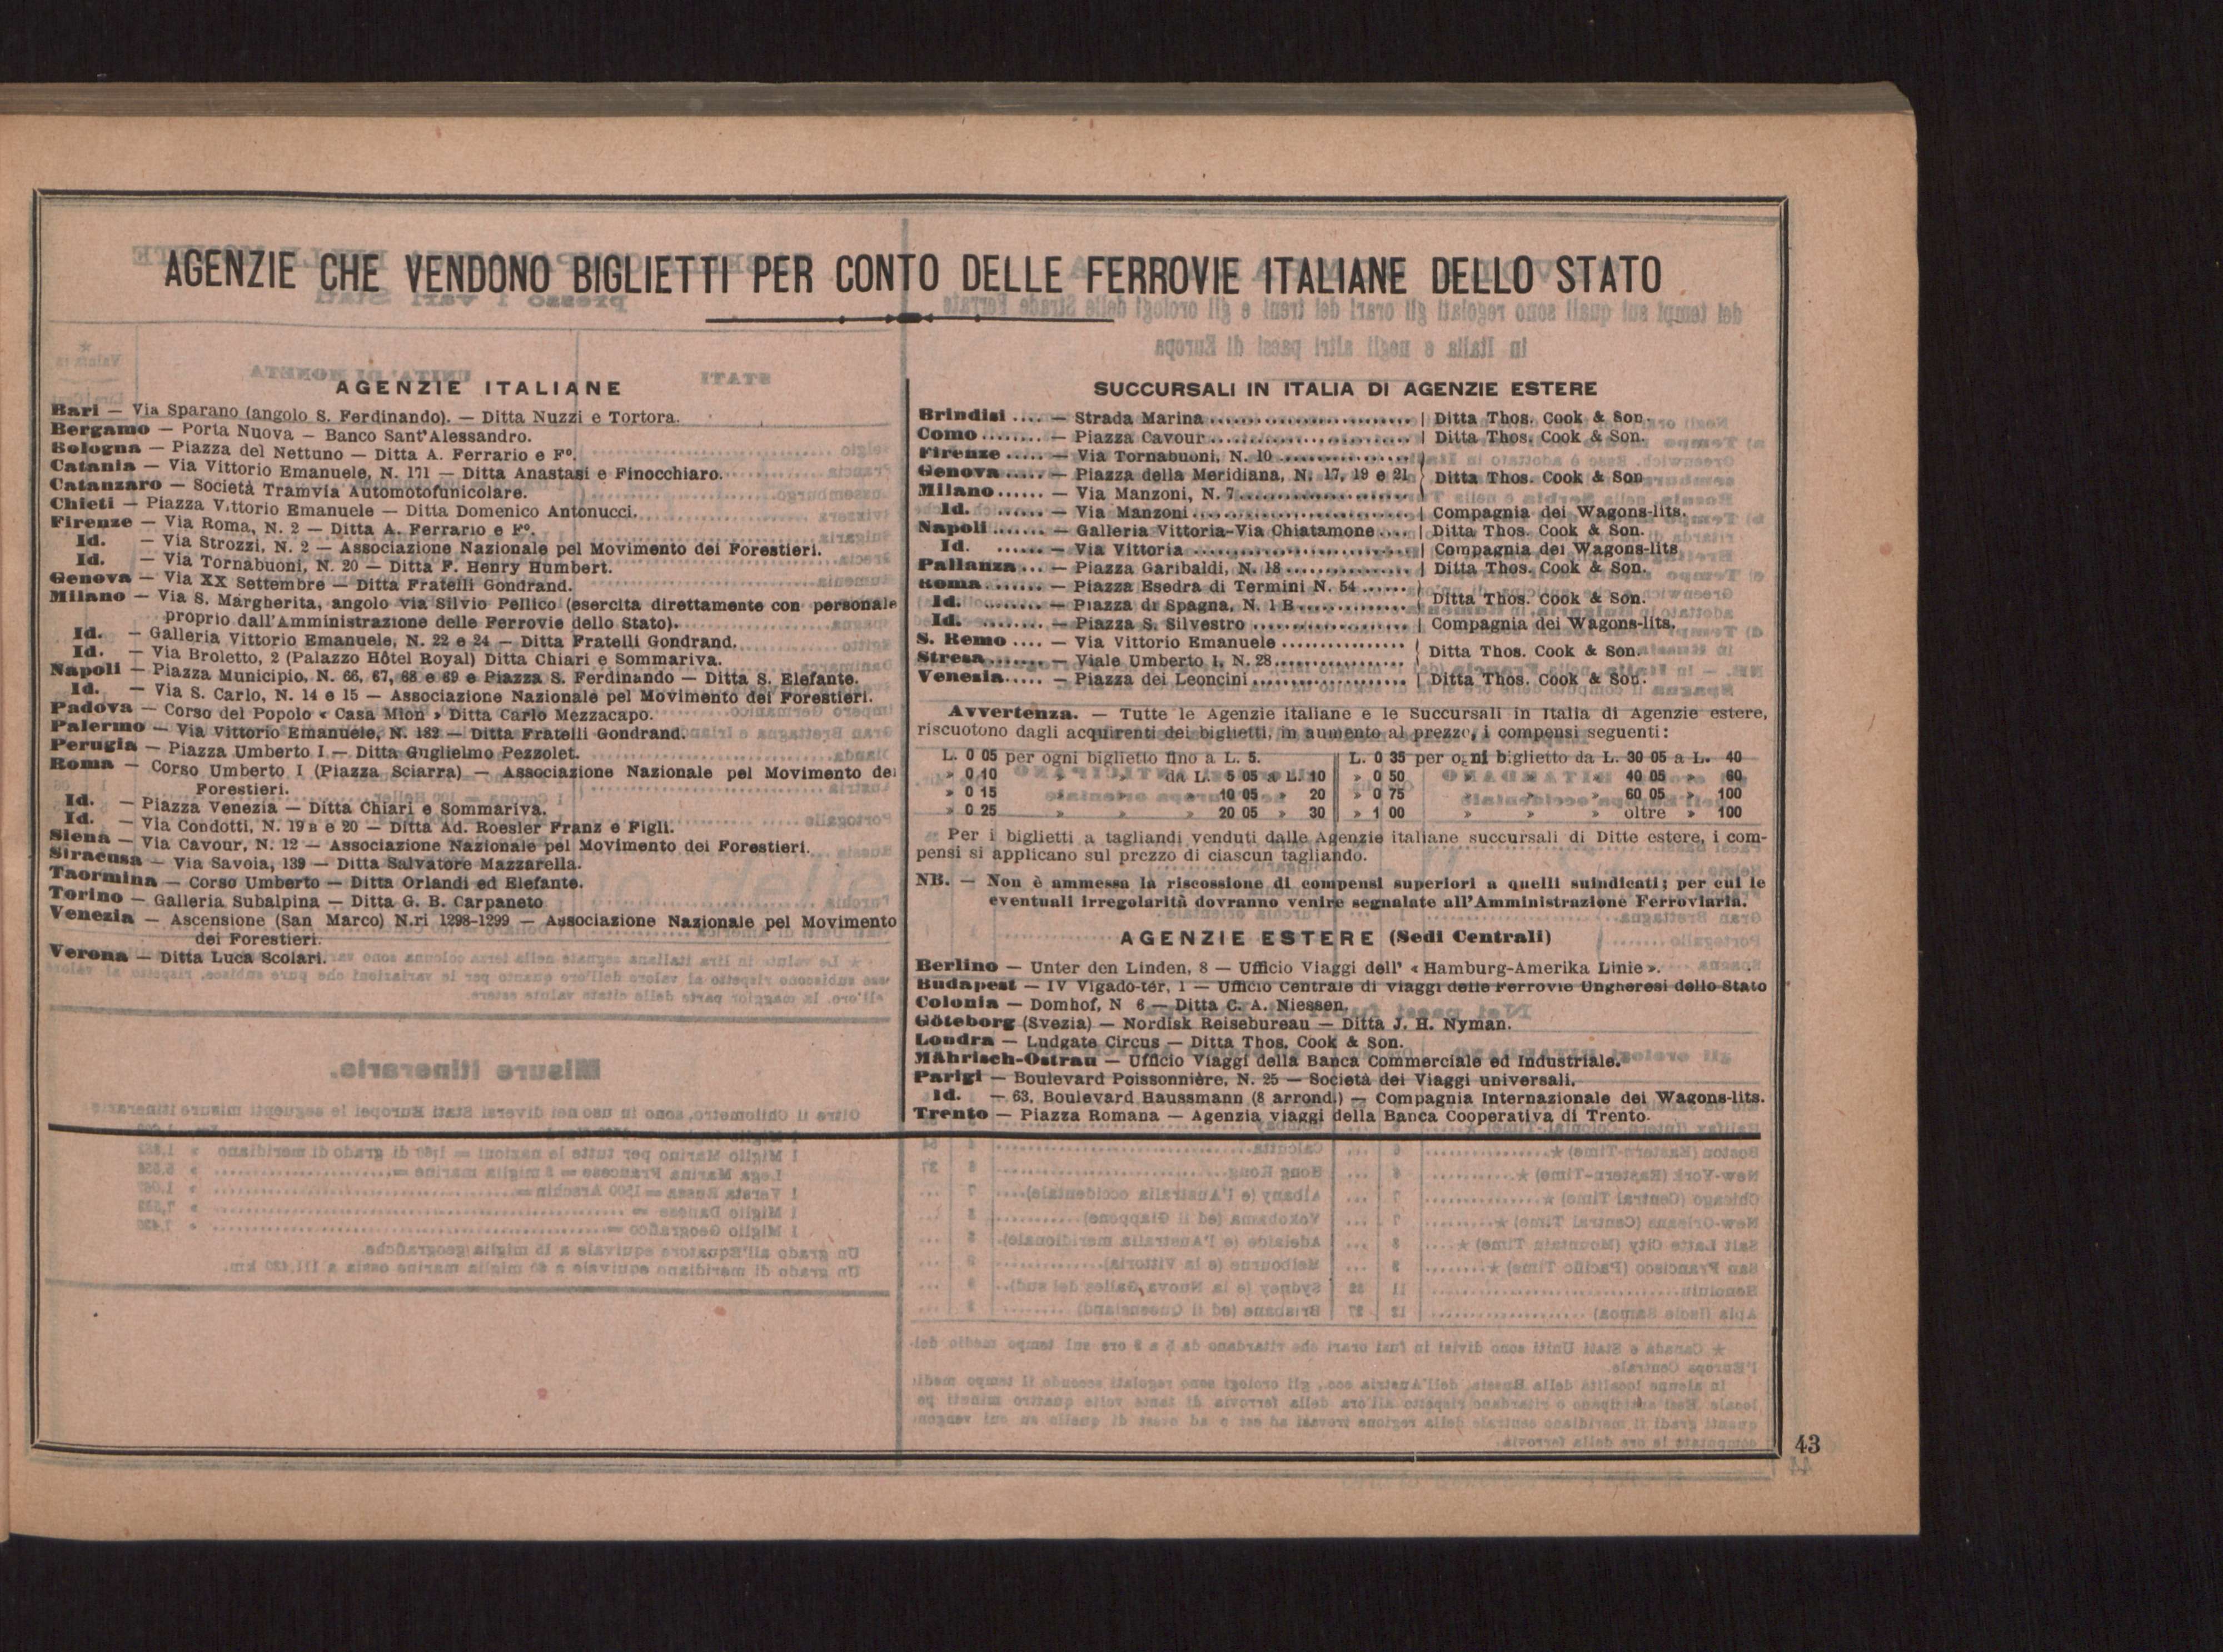 AGENZIE CHE VENDONO BIGLIETTI PER CONTO DELLE FERROVIE ITALIANE DELLO STATO
AGENZIE ITALIANE
Bari — Via Sparano (angolo S. Ferdinando). — Ditta Nuzzi e Tortora.
Bergamo — Porta Nuova — Banco Sant'Alessandro.
Bologna — Piazza del Nettuno — Ditta A. Ferrario e Fº.
Catania — Via Vittorio Emanuele, N. 171 — Ditta Anastasi e Finocchiaro.
Catanzaro — Società Tramvia Automotofunicolare.
Chieti — Piazza Vittorio Emanuele — Ditta Domenico Antonucci.
Firenze — Via Roma, N. 2 — Ditta A. Ferrario e Fº.
Id. — Via Strozzi, N. 2 — Associazione Nazionale pel Movimento dei Forestieri.
Id. — Via Tornabuoni, N. 20 — Ditta F. Henry Humbert.
Genova — Via XX Settembre — Ditta Fratelli Gondrand.
Milano — Via S. Margherita, angolo via Silvio Pellico (esercita direttamente con personale
proprio dall'Amministrazione delle Ferrovie dello Stato).
Id. — Galleria Vittorio Emanuele, N. 22 e 24 — Ditta Fratelli Gondrand.
Id. — Via Broletto, 2 (Palazzo Hôtel Royal) Ditta Chiari e Sommariva.
Napoli — Piazza Municipio, N. 66, 67, 68 e 69 e Piazza S. Ferdinando — Ditta S. Elefante.
Id. — Via S. Carlo, N. 14 e 15 — Associazione Nazionale pel Movimento dei Forestieri.
Padova — Corso del Popolo « Casa Mion » Ditta Carlo Mezzacapo.
Palermo — Via Vittorio Emanuele, N. 182 — Ditta Fratelli Gondrand.
Perugia — Piazza Umberto I — Ditta Guglielmo Pezzolet.
Roma — Corso Umberto I (Piazza Sciarra) — Associazione Nazionale pel Movimento dei
Forestieri.
Id. — Piazza Venezia — Ditta Chiari e Sommariva.
Id. — Via Condotti, N. 19 B e 20 — Ditta Ad. Roesler Franz e Figli.
Siena — Via Cavour, N. 12 — Associazione Nazionale pel Movimento dei Forestieri.
Siracusa — Via Savoia, 139 — Ditta Salvatore Mazzarella.
Taormina — Corso Umberto — Ditta Orlandi ed Elefante.
Torino — Galleria Subalpina — Ditta G. B. Carpaneto
Venezia — Ascensione (San Marco) N.ri 1298-1299 — Associazione Nazionale pel Movimento
dei Forestieri.
Verona — Ditta Luca Scolari.
SUCCURSALI IN ITALIA DI AGENZIE ESTERE
Brindisi .... — Strada Marina .................... | Ditta Thos. Cook & Son.
Como ........ — Piazza Cavour .................... | Ditta Thos. Cook & Son.
Firenze ..... — Via Tornabuoni, N. 10 ................
Genova ..... — Piazza della Meridiana, N. 17, 19 e 21 } Ditta Thos. Cook & Son
Milano ...... — Via Manzoni, N. 7 ....................
Id. ...... — Via Manzoni .................... | Compagnia dei Wagons-lits.
Napoli ....... — Galleria Vittoria-Via Chiatamone .... | Ditta Thos. Cook & Son.
Id. ...... — Via Vittoria .................... | Compagnia dei Wagons-lits
Pallanza ... — Piazza Garibaldi, N. 18 ................ | Ditta Thos. Cook & Son.
Roma ....... — Piazza Esedra di Termini N. 54 ......
Id. ........ — Piazza di Spagna, N. 1 B ............ Ditta Thos. Cook & Son.
Id. ........ — Piazza S. Silvestro .................... | Compagnia dei Wagons-lits.
S. Remo .... — Via Vittorio Emanuele ...............
Stresa ....... — Viale Umberto I, N. 28 ............... Ditta Thos. Cook & Son.
Venezia ..... — Piazza dei Leoncini .................... | Ditta Thos. Cook & Son.
Avvertenza. — Tutte le Agenzie italiane e le Succursali in Italia di Agenzie estere,
riscuotono dagli acquirenti dei biglietti, in aumento al prezzo, i compensi seguenti:
L. 0 05 per ogni biglietto fino a L. 5. L. 0 35 per ogni biglietto da L. 30 05 a L. 40
» 0 10 » » da L. 5 05 a L. 10 » 0 50 » » » 40 05 » 60
» 0 15 » » » 10 05 » 20 » 0 75 » » » 60 05 » 100
» 0 25 » » » 20 05 » 30 » 1 00 » » » oltre » 100
Per i biglietti a tagliandi venduti dalle Agenzie italiane succursali di Ditte estere, i com-
pensi si applicano sul prezzo di ciascun tagliando.
NB. — Non è ammessa la riscossione di compensi superiori a quelli suindicati; per cui le
eventuali irregolarità dovranno venire segnalate all'Amministrazione Ferroviaria.
AGENZIE ESTERE (Sedi Centrali)
Berlino — Unter den Linden, 8 — Ufficio Viaggi dell' « Hamburg-Amerika Linie ».
Budapest — IV Vigado-tér, 1 — Ufficio Centrale di viaggi delle Ferrovie Ungheresi dello Stato
Colonia — Domhof, N 6 — Ditta C. A. Niessen.
Göteborg (Svezia) — Nordisk Reisebureau — Ditta J. H. Nyman.
Londra — Ludgate Circus — Ditta Thos. Cook & Son.
Mährisch-Ostrau — Ufficio Viaggi della Banca Commerciale ed Industriale.
Parigi — Boulevard Poissonnière, N. 25 — Società dei Viaggi universali.
Id. — 63, Boulevard Haussmann (8 arrond.) — Compagnia Internazionale dei Wagons-lits.
Trento — Piazza Romana — Agenzia viaggi della Banca Cooperativa di Trento.
43